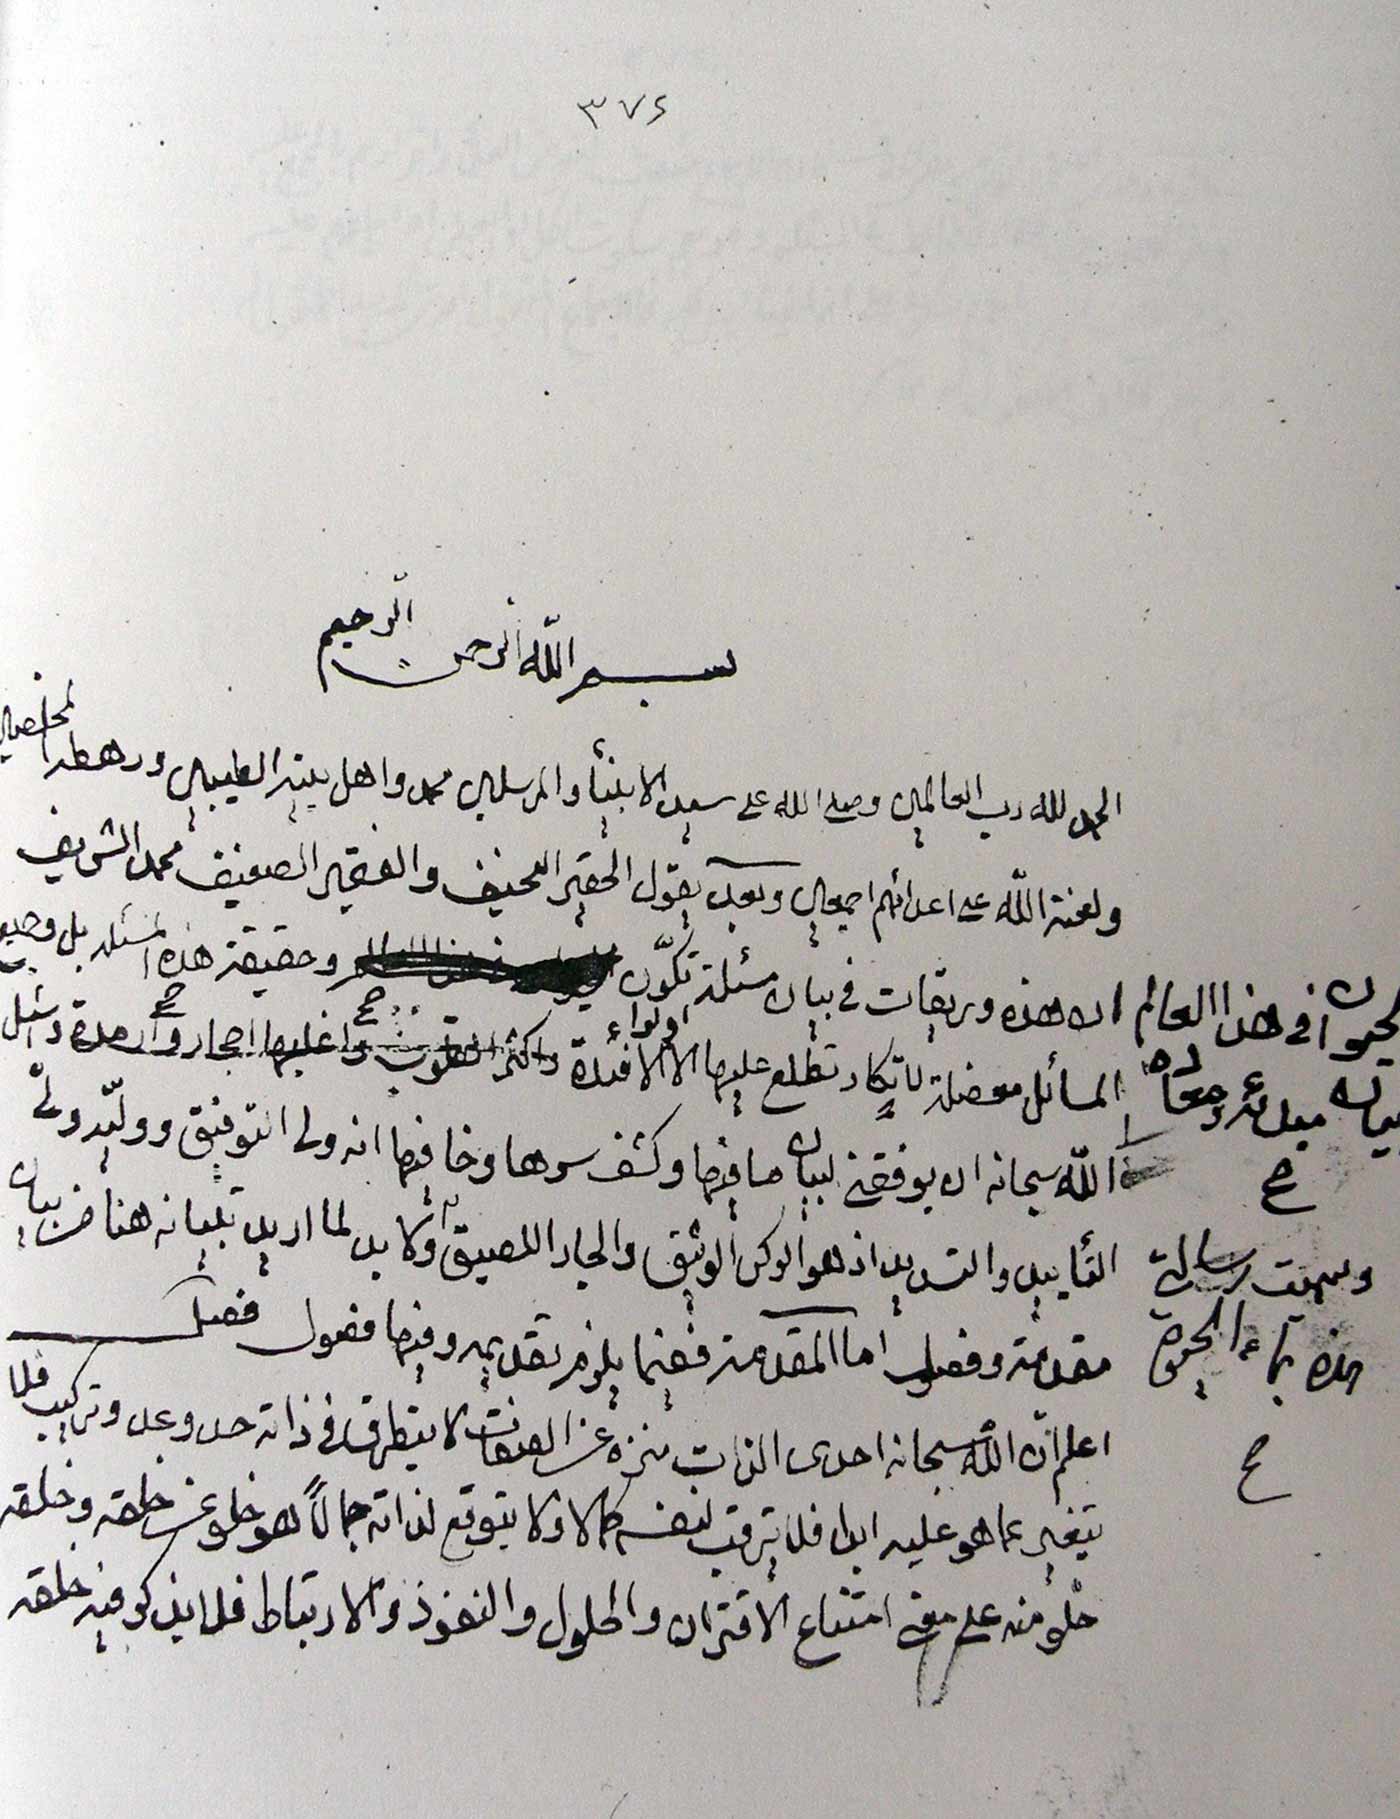 ٣٧۶
بسم الله الرحمن الرحيم
الحمد لله رب العالمين وصلى الله على سيد الانبياء والمرسلين محمد واهل بيته الطيبين ورهطه المخلصين
ولعنة الله على اعدائهم اجمعين وبعد يقول الحقير النحيف والفقير الضعيف محمد الشريف
ان هذه وريقات في بيان مسئلة تكوّن وحقيقة هذه المسئلة بل وجميع
الحيوان في هذا العالم
المسائل معضلة لا تكاد تطلع عليها الا الافئدة واكثر القلوب واغلبها احجار وارمدة واسئل
بيان مبدئه ومعاده
صح
الله سبحانه ان يوفقني لبيان ما فيها وكشف سرها وخافيها انه ولي التوفيق ووليّه وليّ
التأييد والتسديد اذ هو الركن الوثيق والجار اللصيق ولا بد لما اريد تبيانه هنا من بيان
وسميت رسالة
هذه بماء الحيوة
صح
مقدمة وفصول اما المقدمة ففيما يلزم تقديمه وفيها فصول فصل
اعلم ان الله سبحانه احدى الذات منزه عن الصفات لا يتطرق في ذاته حد وعد وتركيب فلا
يتغير عما هو عليه ابدا فلا يترقب لنفسه كمالا ولا يتوقع لذاته جمالاً هو خلو عن خلقه وخلقه
خلو منه على معنى امتناع الاقتران والحلول والنفوذ والارتباط فلا يذكر فيه خلقه